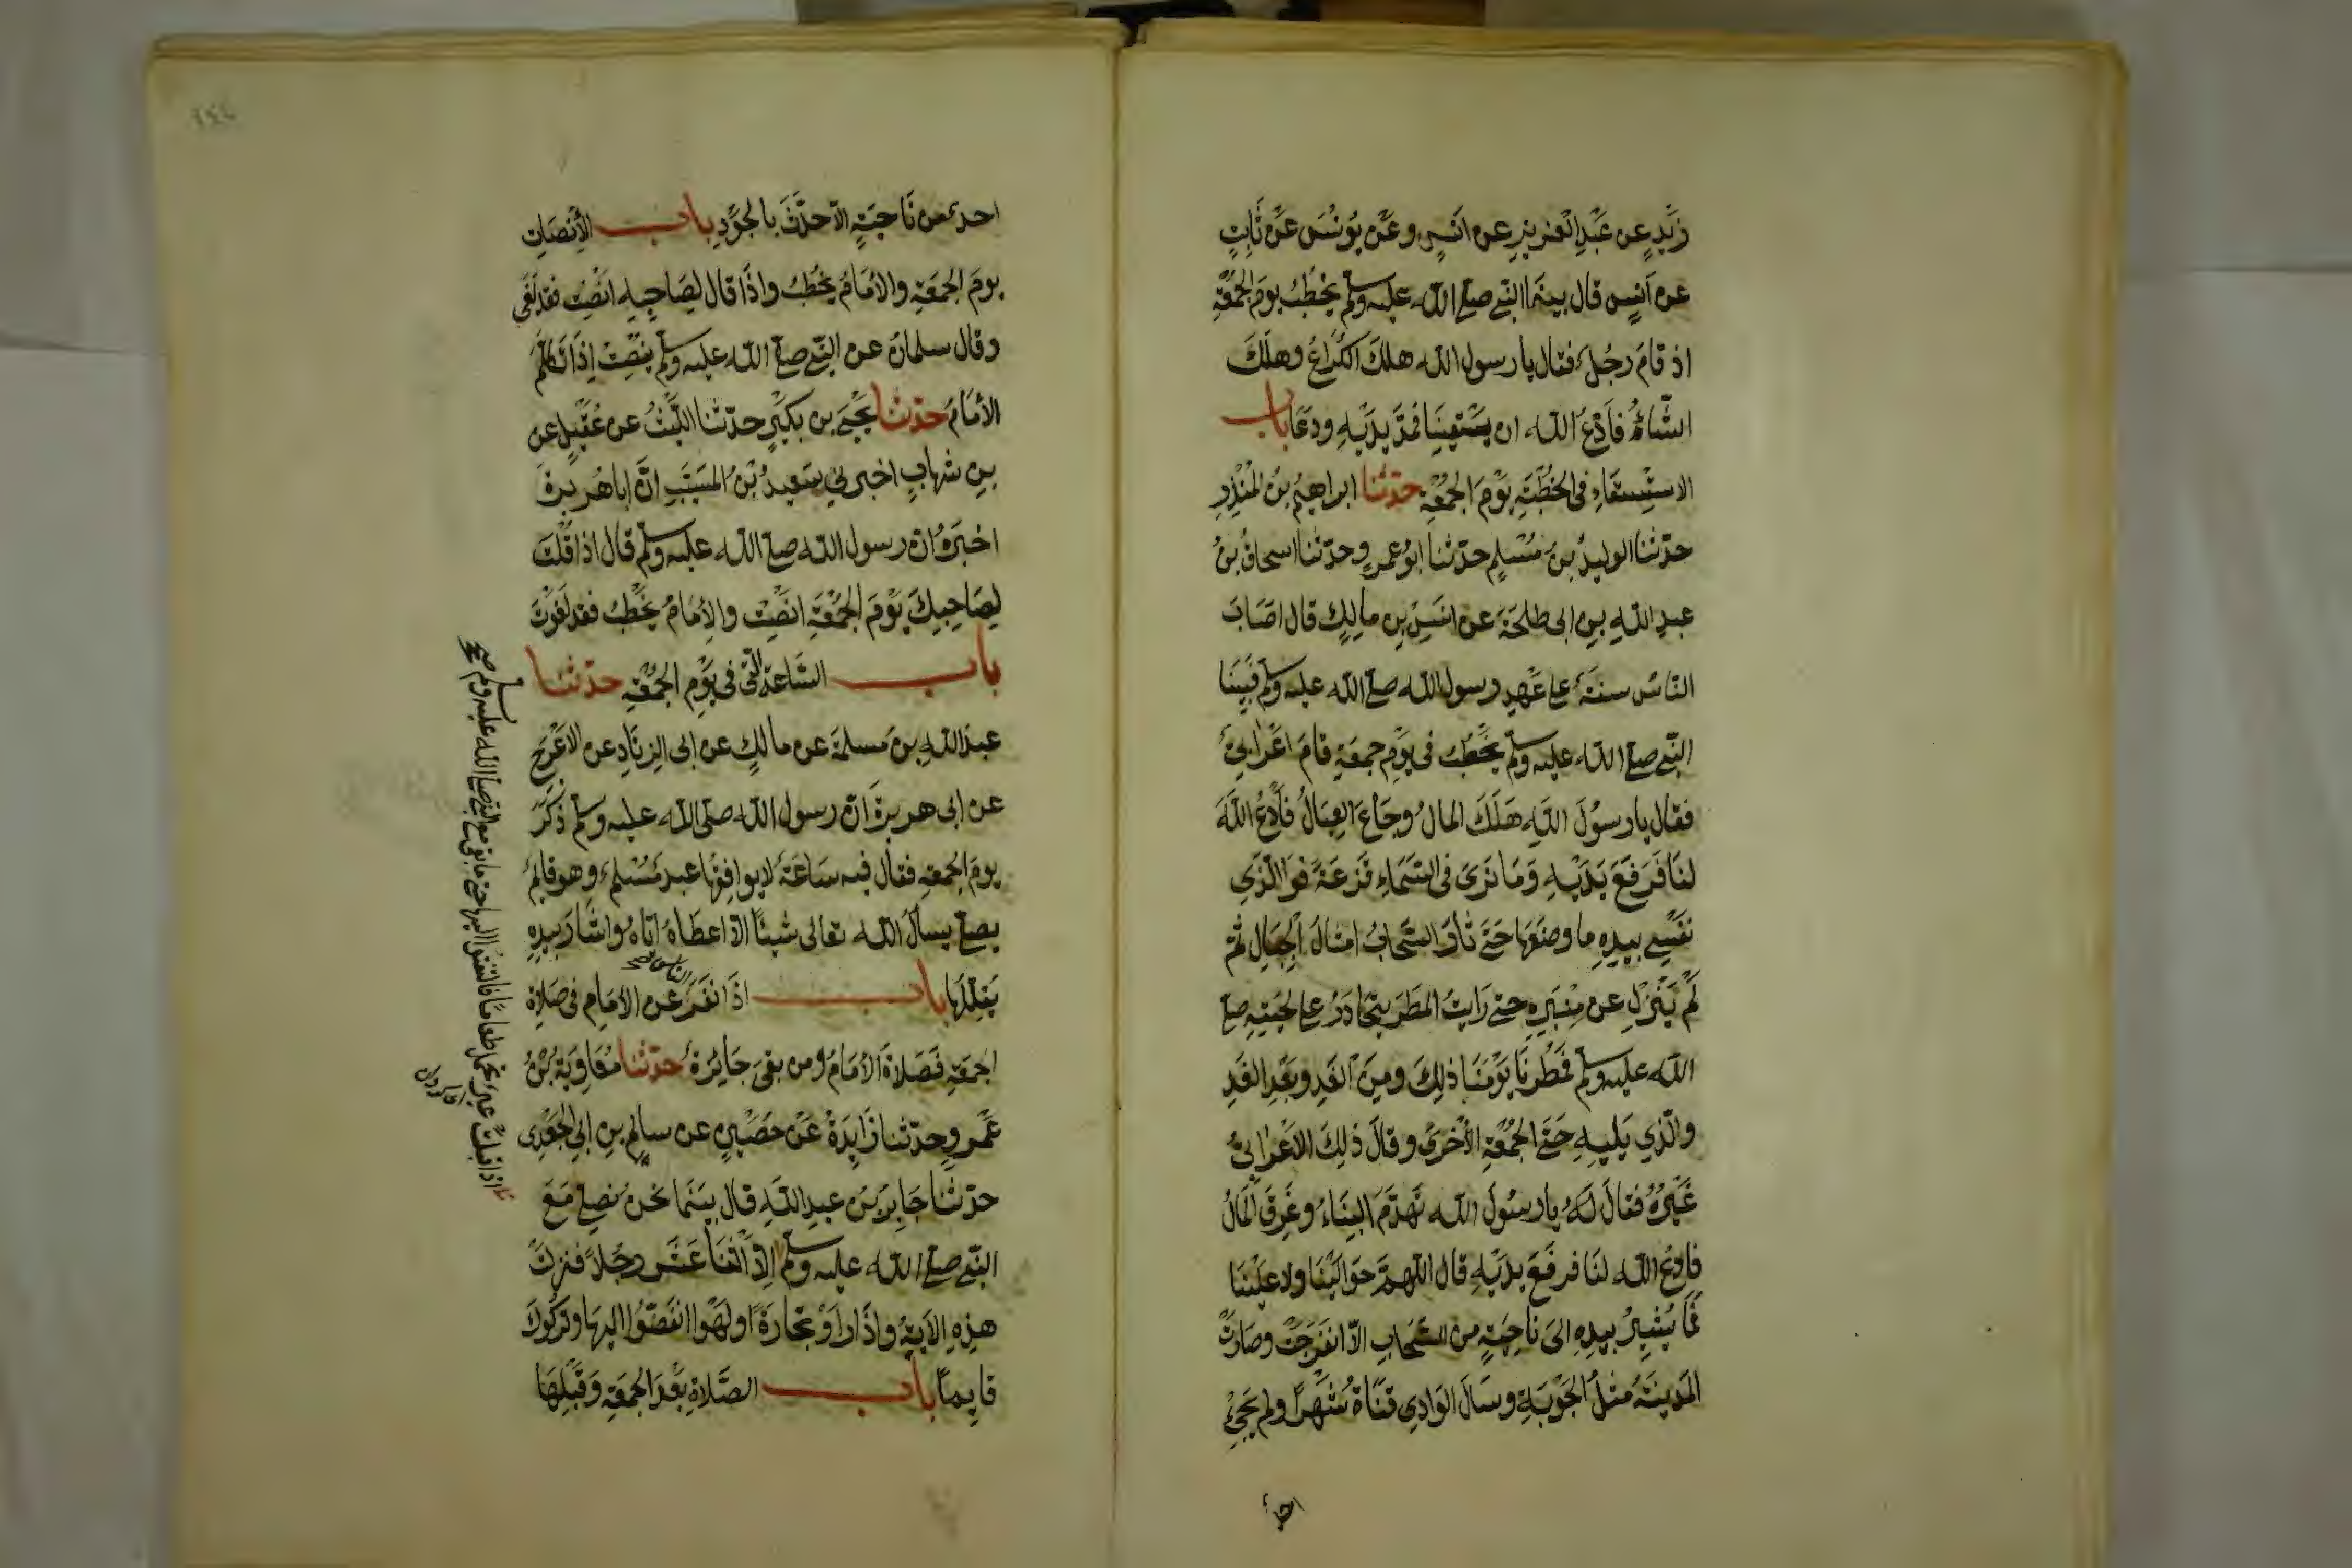 زَيْدٍ عن عَبْدِ الْعَزِيزِ عن اَنَسٍ وعَنْ يُونُسَ عَنْ ثَابِتٍ
عن اَنَسٍ قال بينَمَا النّبي صلى الله عليه وسلم يَخْطُبُ يومَ الجُمْعَةِ
اذ قامَ رجُلٌ فقال يا رسول الله هلكَ الكُرَاعُ وهلَكَ
الشَّاءُ فَادْعُ الله ان يَسْقِيَنَا فمَدَّ يدَيْهِ ودَعَا باب
الاستِسْقَاءِ في الخُطْبَةِ يَوْمَ الجُمْعَةِ حدّثنا ابراهيمُ بنُ المُنْذِرِ
حدّثنا الوليدُ بنُ مُسْلِمٍ حدّثنا ابُو عمرٍو حدّثنا اسحاقُ بنُ
عبدِ اللهِ بنِ ابى طلحَةَ عن انسِ بنِ مالِكٍ قال اصَابَ
النَّاسَ سنَةٌ على عَهْدِ رسول الله صلى الله عليه وسلم فبَيْنَا
النّبي صلى الله عليه وسلم يَخْطُبُ في يَوْمِ جمعَةٍ قامَ اعْرَابيٌّ
فقال يا رسُولَ اللهِ هَلَكَ المالُ وجَاعَ العِيَالُ فَادْعُ اللهَ
لنَا فَرَفَعَ يَدَيْهِ وَمَا نَرَى في السَّمَاءِ قَزعَةً فوَالّذي
نَفْسِي بيدِهِ ما وضَعَهَا حَتّى ثارَ السّحَابُ امثالَ الجِبَالِ ثمّ
لَمْ يَنْزِلْ عن مِنْبَرِهِ حتى رَايتُ المطَرَ يتحَادَرُ على لحْيَتِهِ صلى
الله عليه وسلم فمُطِرْنَا يَوْمَنَا ذلِكَ ومِنَ الغَدِ وبَعْدِ الغَدِ
والّذي يَلِيهِ حَتّى الجُمُعَةِ الاُخرَى وقَالَ ذلِكَ الاَعْرَابيُّ
غَيْرُهُ فقالَ لَهُ يا رسُولَ الله تَهدَّمَ البِنَاءُ وغَرِقَ المَالُ
فادعُ الله لنَا فرفَعَ يدَيْهِ قال اللهمّ حوَالَيْنَا ولا علَيْنَا
فمَا يُشِيرُ بيدِهِ الىَ ناحِيَةٍ من السّحَابِ الاّ انفرَجَتْ وصَارتْ
المَدِينَةُ مثلُ الجَوْبَةِ وسَالَ الوَادِي قنَاةُ شَهْراً ولم يَجِئْ
احدٌ
احدٌ من نَاحِيَةٍ الاّ حدّثَ بالجَوْدِ باب الاِنْصَاتِ
يومَ الجُمعَةِ والاِمَامُ يَخْطُبُ واذَا قال لِصَاحِبِهِ انْصِتْ فقد لَغَى
وقال سلمانُ عن النّبي صلى الله عليه وسلم يُنْصِتُ اِذَا تكلّمَ
الاِمَامُ حدّثنا يَحْيَى بن بكَيْرٍ حدّثنا اللّيْثُ عن عُقَيْلٍ عن
بنِ شهابٍ اخبرني سَعِيدُ بْنُ المُسَيّبِ انّ اباهُريرةَ
اخبَرَهُ ان رسول الله صلى الله عليه وسلم قال اذا قُلْتَ
لِصَاحِبِكَ يَوْمَ الجُمْعَةِ انْصِتْ والاِمَامُ يَخْطُبُ فقد لغَوْتَ
باب السَّاعَةِ الّتي في يَوْمِ الجُمُعَةِ حدّثنا
عبدُ اللهِ بن مَسلمَةَ عن مالِكٍ عن ابى الزِنَادِ عن الاَعْرَجِ
عن ابى هريرةَ انّ رسول الله صلى الله عليه وسلم ذَكَرَ
يومَ الجمعةِ فقال فيه سَاعَةٌ لا يوافِقُهَا عبدٌ مُسْلمٌ وهو قائِمٌ
يصلى يسألُ الله تعالى شيئاً الاّ اعطَاهُ ايّاهُ واشَارَ بيدِهِ
يُقلِّلُهَا باب اذَا نفَرَ الناس عن الاِمَامِ في صَلاةِ
الجمعَةِ فَصَلاةُ الاِمَامِ ومن بقىَ جَايزَةٌ حدّثنا مُعَاوِيَةُ بْنُ
عَمْرٍو حدّثنا زَايِدَةُ عَنْ حُصَيْنٍ عن سالمِ بنِ ابي الجَعْدِ
حدّثنا جَابرُ بْنُ عبدِ اللهِ قال بينَمَا نحنُ نصَلِّى مَعَ
النّبي صلى الله عليه وسلم اِلاّ اثْنَا عَشَر رجُلاً فنزلتْ
هذِهِ الايَةُ واذَا راَوْ تِجَارَةً اولهَوْا انفَضّوا اليهَا وتركُوكَ
قايمًا باب الصَّلاةِ بَعْدَ الجمعَةِ وَقَبْلِهَا
اذ اقبلتْ عيرٌ تحمل طعامًا فالتفتُوا اليها حتى ما بقي مع النبي صلى الله عليه وسلم صح